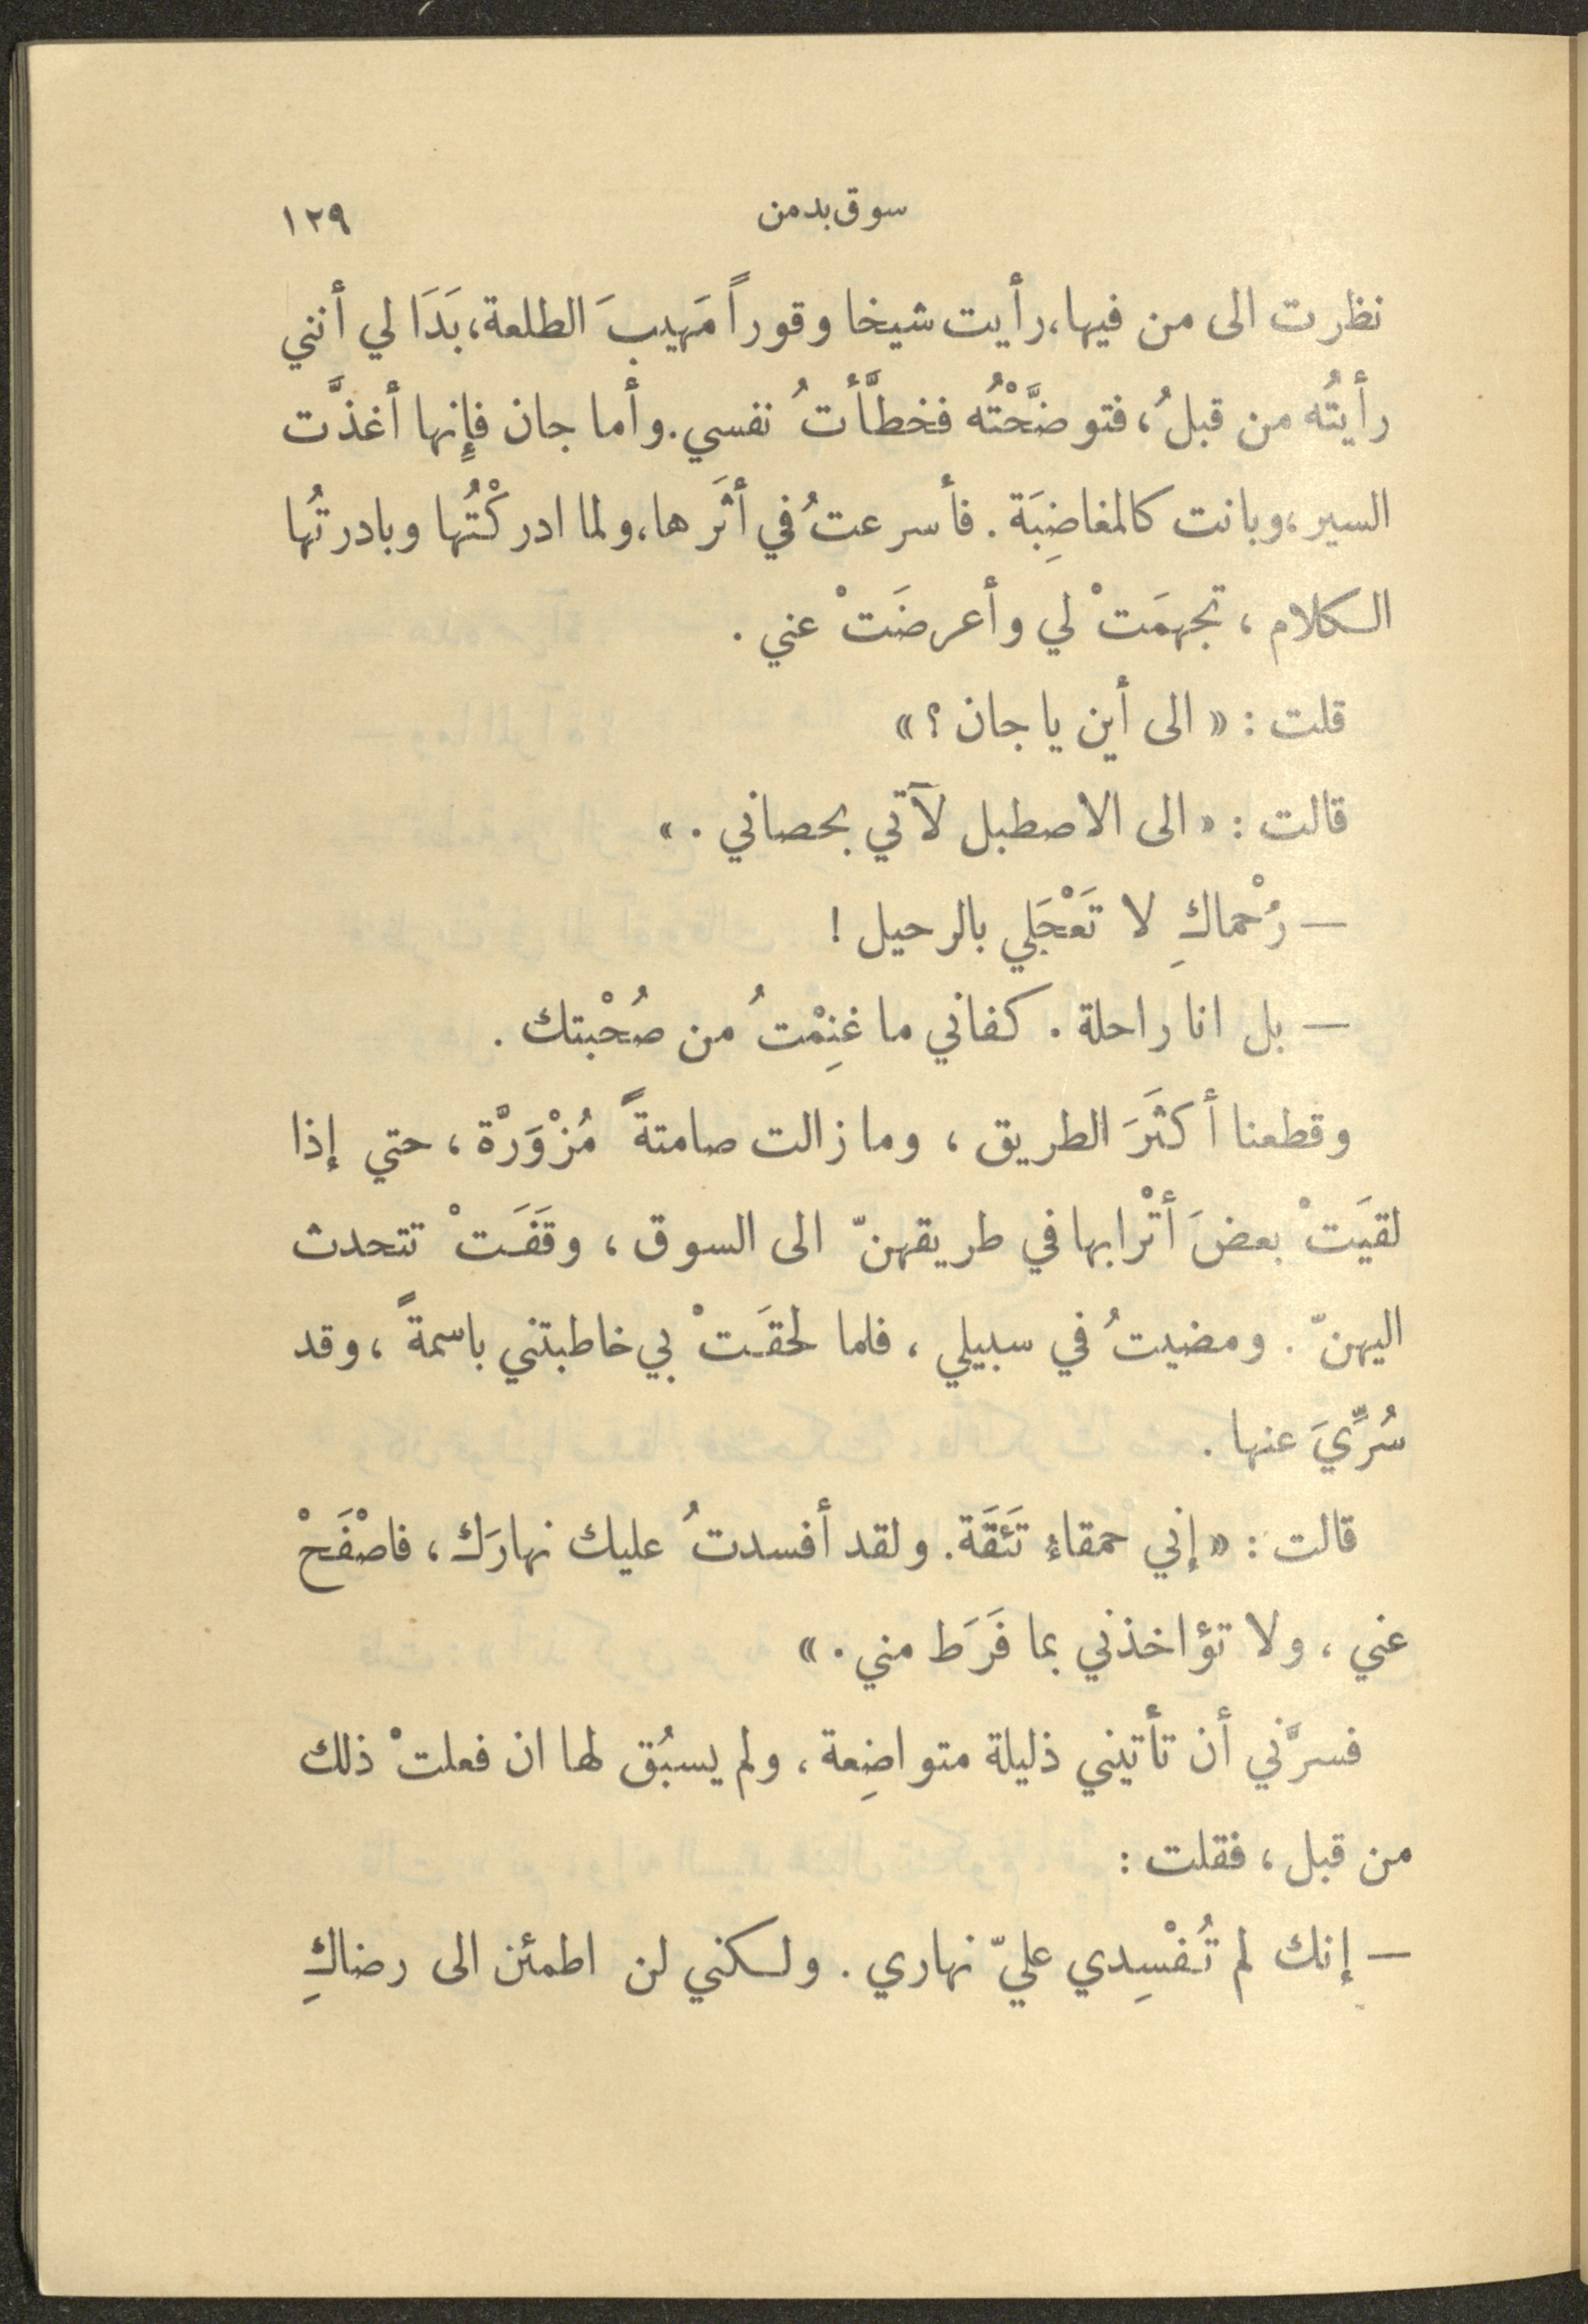 سوق بدمن ١٢٩
نظرت الى من فيها، رأيت شيخا وقوراً مَهيبَ الطلعة، بَدَا لي أنني
رأيتُه من قبلُ، فتوضَّحْتُه فخطَّأتُ نفسي. وأما جان فإِنها أغذَّت
السير، وبانت كالمغاضِبَة. فأسرعتُ في أثَرها، ولما ادركْتُها وبادرتُها
الكلام، تجهمَتْ لي وأعرضَتْ عني.
قلت : « الى أين يا جان ؟ »
قالت : « الى الاصطبل لآتي بحصاني . »
— رُحْماكِ لا تَعْجَلي بالرحيل !
— بل انا راحلة . كفاني ما غنِمْتُ من صُحْبتك .
وقطعنا أكثَرَ الطريق ، وما زالت صامتةً مُزْوَرَّة ، حتي إذا
لقيَتْ بعضَ أتْرابها في طريقهنّ الى السوق ، وقَفَتْ تتحدث
اليهنّ . ومضيتُ في سبيلي ، فلما لحقَتْ بي خاطبتني باسمةً ، وقد
سُرِّيَ عنها .
قالت : « إني حمقاء تَئقَة . ولقد أفسدتُ عليك نهارَك ، فاصْفَحْ
عني ، ولا تؤاخذني بما فَرَط مني . »
فسرَّني أن تأتيني ذليلة متواضِعة ، ولم يسبُق لها ان فعلتْ ذلك
من قبل ، فقلت :
— إنك لم تُفْسِدي عليّ نهاري . ولكني لن اطمئن الى رضاكِ